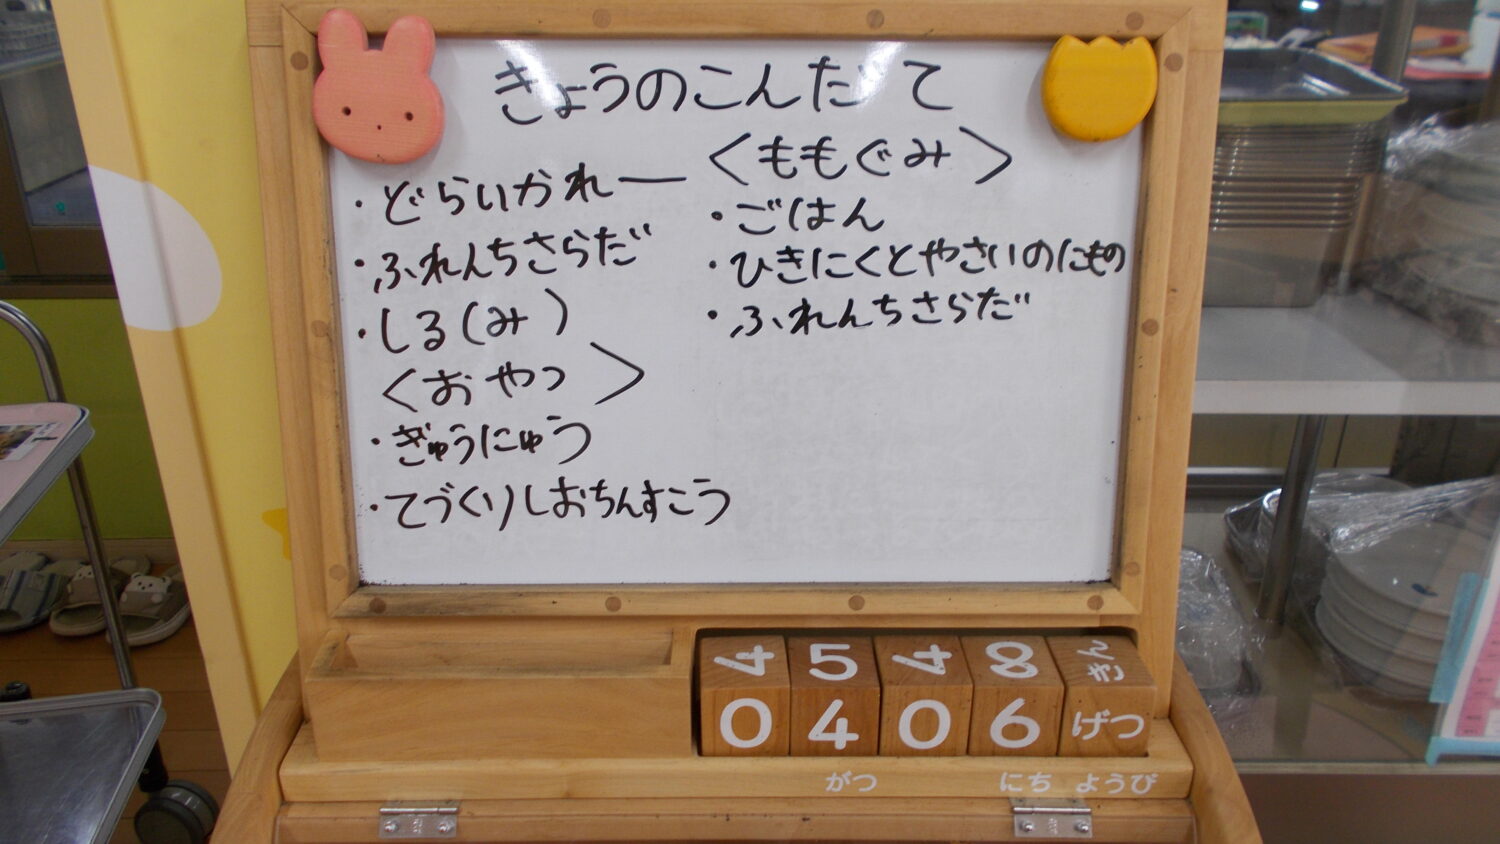 きょうのこんだて
・どらいかれー
・ふれんちさらだ
・しる(み)
<おやつ>
・ぎゅうにゅう
・てづくりしおちんすこう
<ももぐみ>
・ごはん
・ひきにくとやさいのにもの
・ふれんちさらだ
4 5 4 8 きん
0 4 0 6 げつ
がつ にち ようび